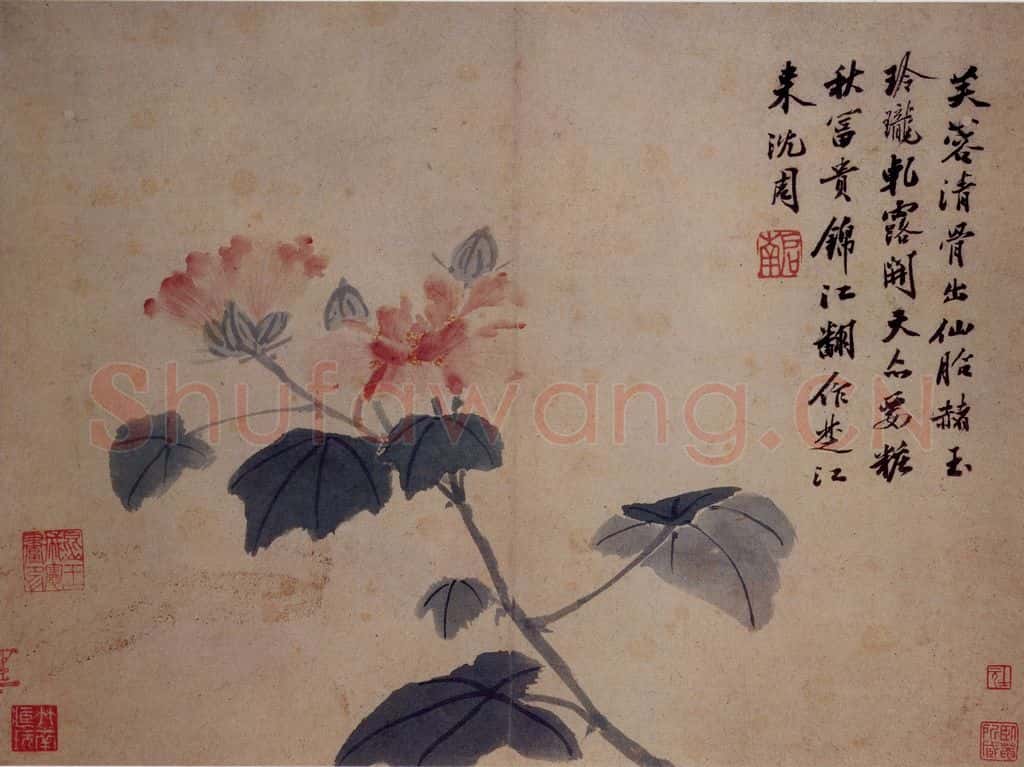 芙蓉清骨出仙胎赭玉
玲瓏軋露開天亦要粧
秋富貴錦江翻作楚江
来沈周
啟南
Shufawang.CN